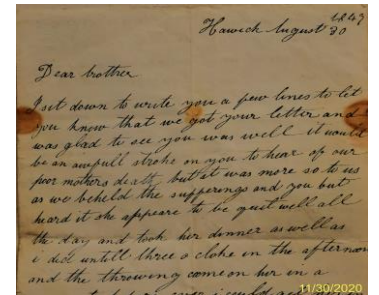 Hawick August 30 1849
Dear brother
I sit down to write you a few lines to let
you know that we got your letter and
was glad to see you was well it would
be an awpull stroke on you to hear of our
poor mothers death but it was more so to us
as we beheld the supferings and you but
heard it she appeare to be quit well all
the day and took her dinner as well as
i did untill three o cloke in the afternoon
and the throwing come on her in a
11/30/2020